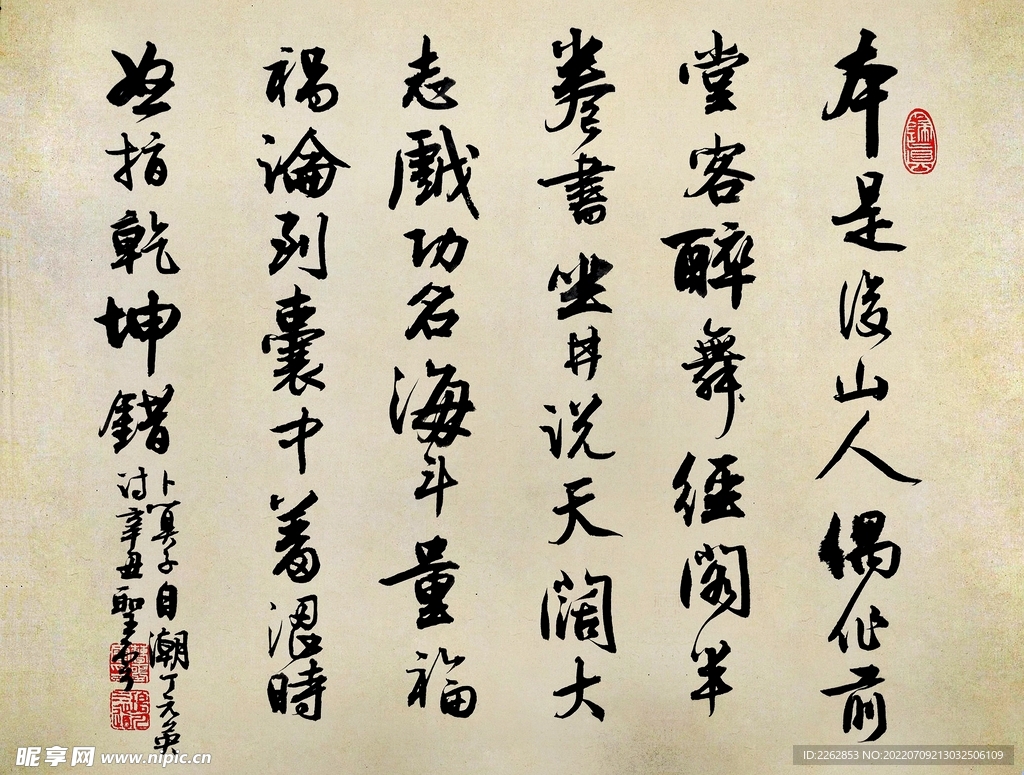 本是後山人偶作前
堂客醉舞經閣半
卷書坐井说天闊大
志戲功名海斗量福
禍論到囊中羞澀時
怒指乾坤錯
卜算子自潮丁元英
诗辛丑聖
昵享网 www.nipic.cn
ID:2262853 NO:20220709213032506109